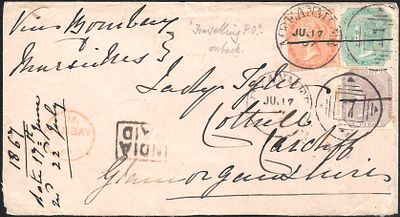 Via Bombay
&
Marseilles
"Travelling P.O."
on back
JU.17
Lady Tyler
JU.17
Cottrell
Cardiff
Glamorganshire
INDIA
PAID
1867
date 17th June
22 July